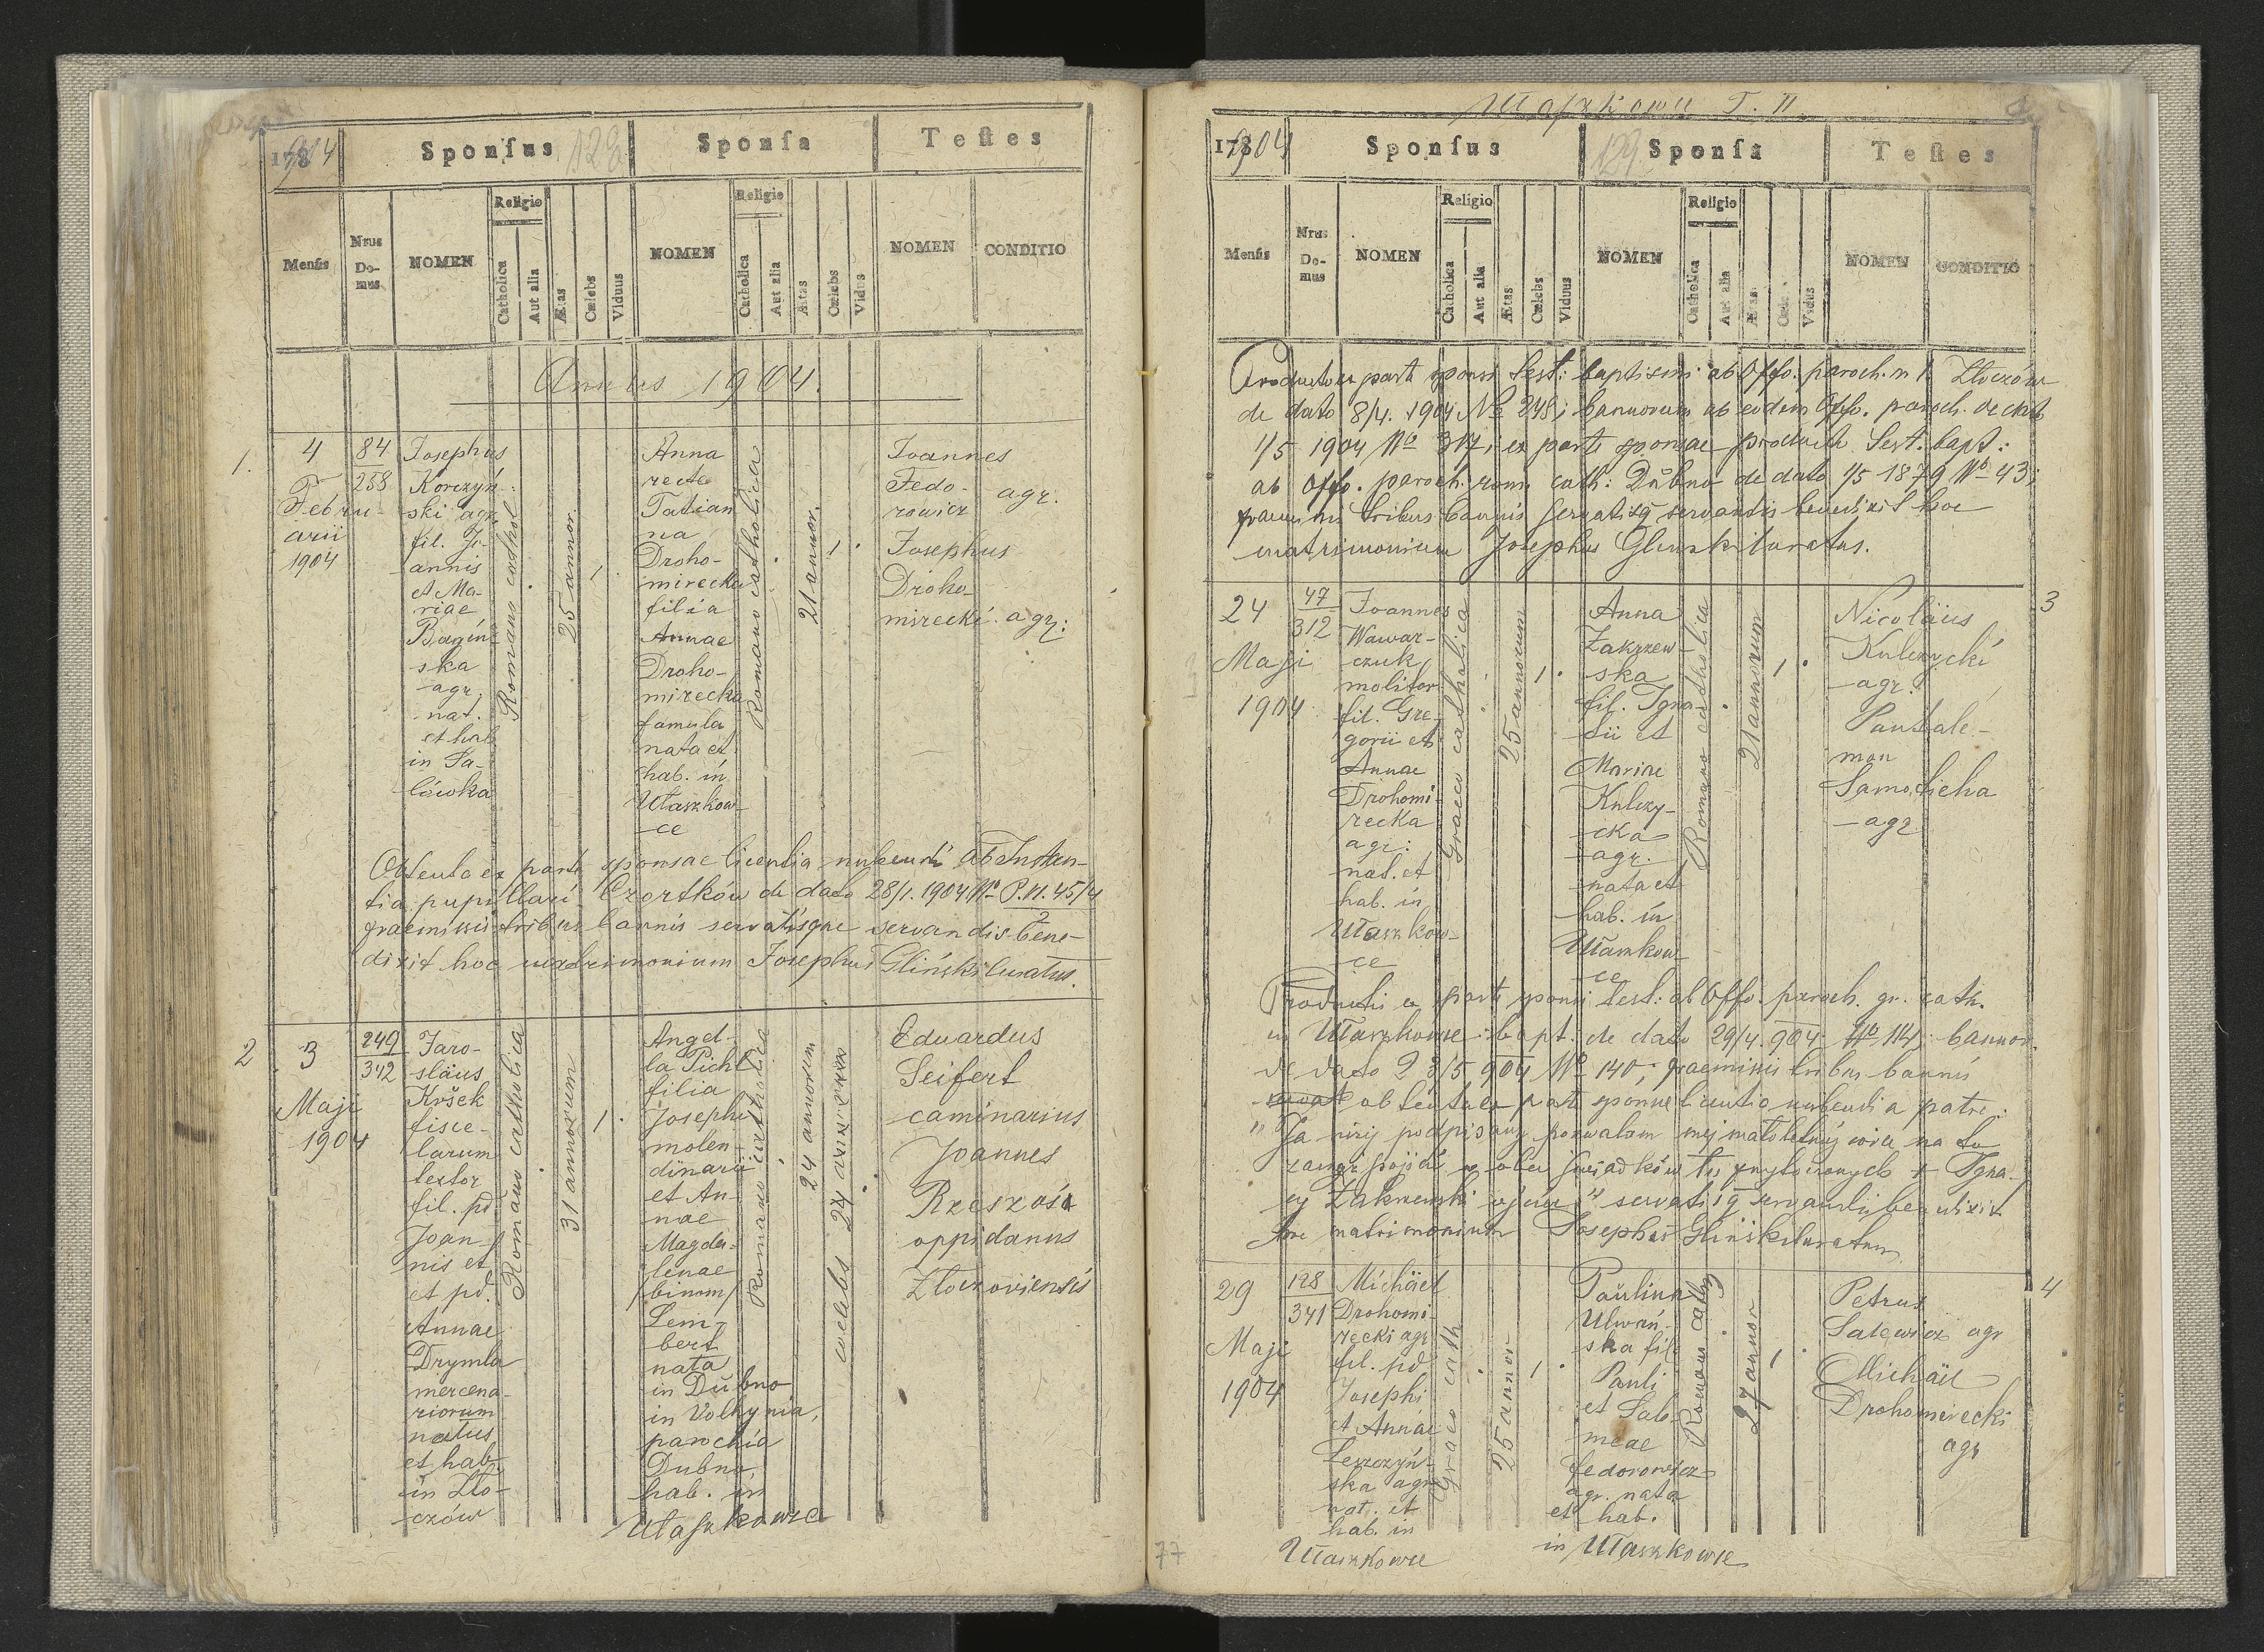 1904
Sponſus
128
Sponſa
Teſtes
Menſis
Nrus
Do-
mus
NOMEN
Religio
Catholica
Aut alia
Ætas
Cœlebs
Viduus
NOMEN
Religio
Catholica
Aut alia
Ætas
Cœlebs
Vidua
NOMEN
CONDITIO
Annus 1904.
1.
4
Febru-
arii
1904
84
258
Josephus
Korczyń-
ski agr.
fil. Jo-
annis
et Ma-
riae
Bagiń-
ska
agr.
nat.
et hab.
in Sa-
lówka
Romano cathol.
25 annor.
1.
Anna
recte
Tatian
na
Droho-
mirecka
filia
Annae
Droho-
mirecka
famula
nata et
hab. in
Ułaszkow-
ce
Romano catholica
21 annor.
1.
Joannes
Fedo-
rowicz
agr.
Josephus
Droho-
mirecki agr:
Obtenta ex parte sponsae licentia nubendi ab Instan-
tia pupillari Czortków de dato 28/1. 1904 No P.II.45/4
2
praemissis tribus bannis servatisque servandis bene-
dixit hoc matrimonium Josephus Gliński Curatus.
2
3
Maji
1904
249
342
Jaro-
släus
Kršek
fisce-
larum
textor
fil. pd.
Joan-
nis et
et pd.
Annae
Drymla
mercena-
riorum
natus
et hab.
in Zło-
czów
Romano catholica
31 annorum
1.
Angel-
la Pichl
filia
Josephi
molen-
dinarii
et An-
nae
Magda-
lenae
/binom/
Leim-
bert
nata
in Dubno
in Volhynia,
parochia
Dubno,
hab. in
Ułaszkowce
Romano catholica
24 annorum
coelebs 24
Eduardus
Seifert
caminarius
Joannes
Rzeszóś
oppidanus
Złoczoviensis
Ułaszkowce T. II.
1904
Sponſus
129
Sponſa
Teſtes
Menſis
Nrus
Do-
mus
NOMEN
Religio
Catholica
Aut alia
Ætas
Cœlebs
Viduus
NOMEN
Religio
Catholica
Aut alia
Ætas
Cœlebs
Vidua
NOMEN
CONDITIO
Producto ex parte sponsi test: baptismi ab Offo. paroch. r. l. Złoczów
de dato 8/4. 1904 No 248; bannorum ab eodem Offo. paroch. de dato
1/5 1904 No 317; ex parte sponsae producto test. bapt.:
ab Offo. paroch. rom. cath: Dubno de dato 1/5 1879 No 43;
praemissis tribus bannis servatisq servandis benedixit hoc
matrimonium Josephus Gliński Curatus.
24
Maji
1904
47
312
Joannes
Wawar-
czuk
molitor
fil. Gre-
gorii et
Annae
Drohomi-
recka
agr:
nat. et
hab. in
Ułaszkow-
ce
Graeco catholica
25 annorum
1.
Anna
Zakrzew-
ska
fil. Igna-
tii et
Mariae
Kulczy-
cka
agr.
nata et
hab. in
Ułaszkow-
ce
Romano catholica
21 annorum
1.
Nicoläus
Kulczycki
agr.
Pantale-
mon
Samolicha
agr
3
Productis ex parte sponsi test: ab Offo. paroch. gr. cath.
in Ułaszkowce: bapt. de dato 29/4. 904 No 114; bannor.
de dato 23/5 904 No 140; praemissis tribus bannis
obtenta ex parte sponsae licentia nubendi a patre:
"Ja niżej podpisany pozwalam mej małoletniej córce na to
zamąż pójść w obec świadków tu przytoczonych + Igna-
cy Zakrzewski ojciec" servatisq servandis benedixit
hoc matrimonium Josephus Gliński Curatus
29
Maji
1904
128
341
Michäel
Drohomi-
recki agr
fil. pd
Josephi
et Annae
Leszczyń-
ska agr
nat. et
hab. in
Ułaszkowce
Graeco cath
25 annor.
1.
Paulina
Ulwań-
ska fil.
Pauli
et Salo-
meae
Fedorowicz
agr. nata
et hab.
in Ułaszkowce
Romano cath
27 annor
1.
Petrus
Salewicz agr
Michäel
Drohomirecki
agr
4
77